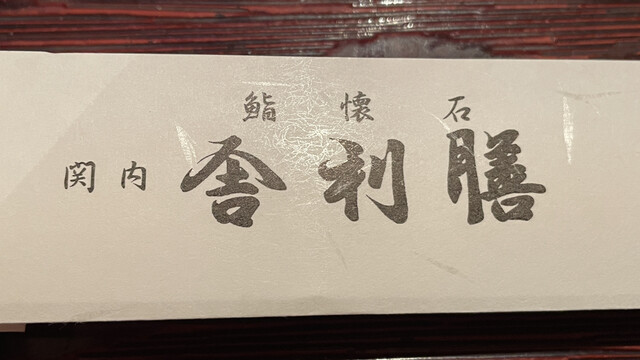 鮨懐石
関内 舎利膳